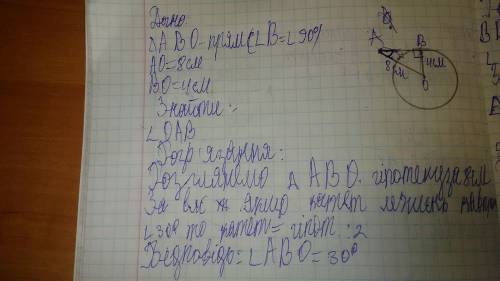 Дано:
Δ ABO - прям (∠B=∠90°)
AO=8см
BO=4см
Знайти:
∠OAB
Розглянемо Δ ABO. гіпотенуза 8см
За вл. якщо катет лежить
∠30° то катет = гіпот :2
Відповідь: ∠ABO=30°
A
B
8см
4см
O